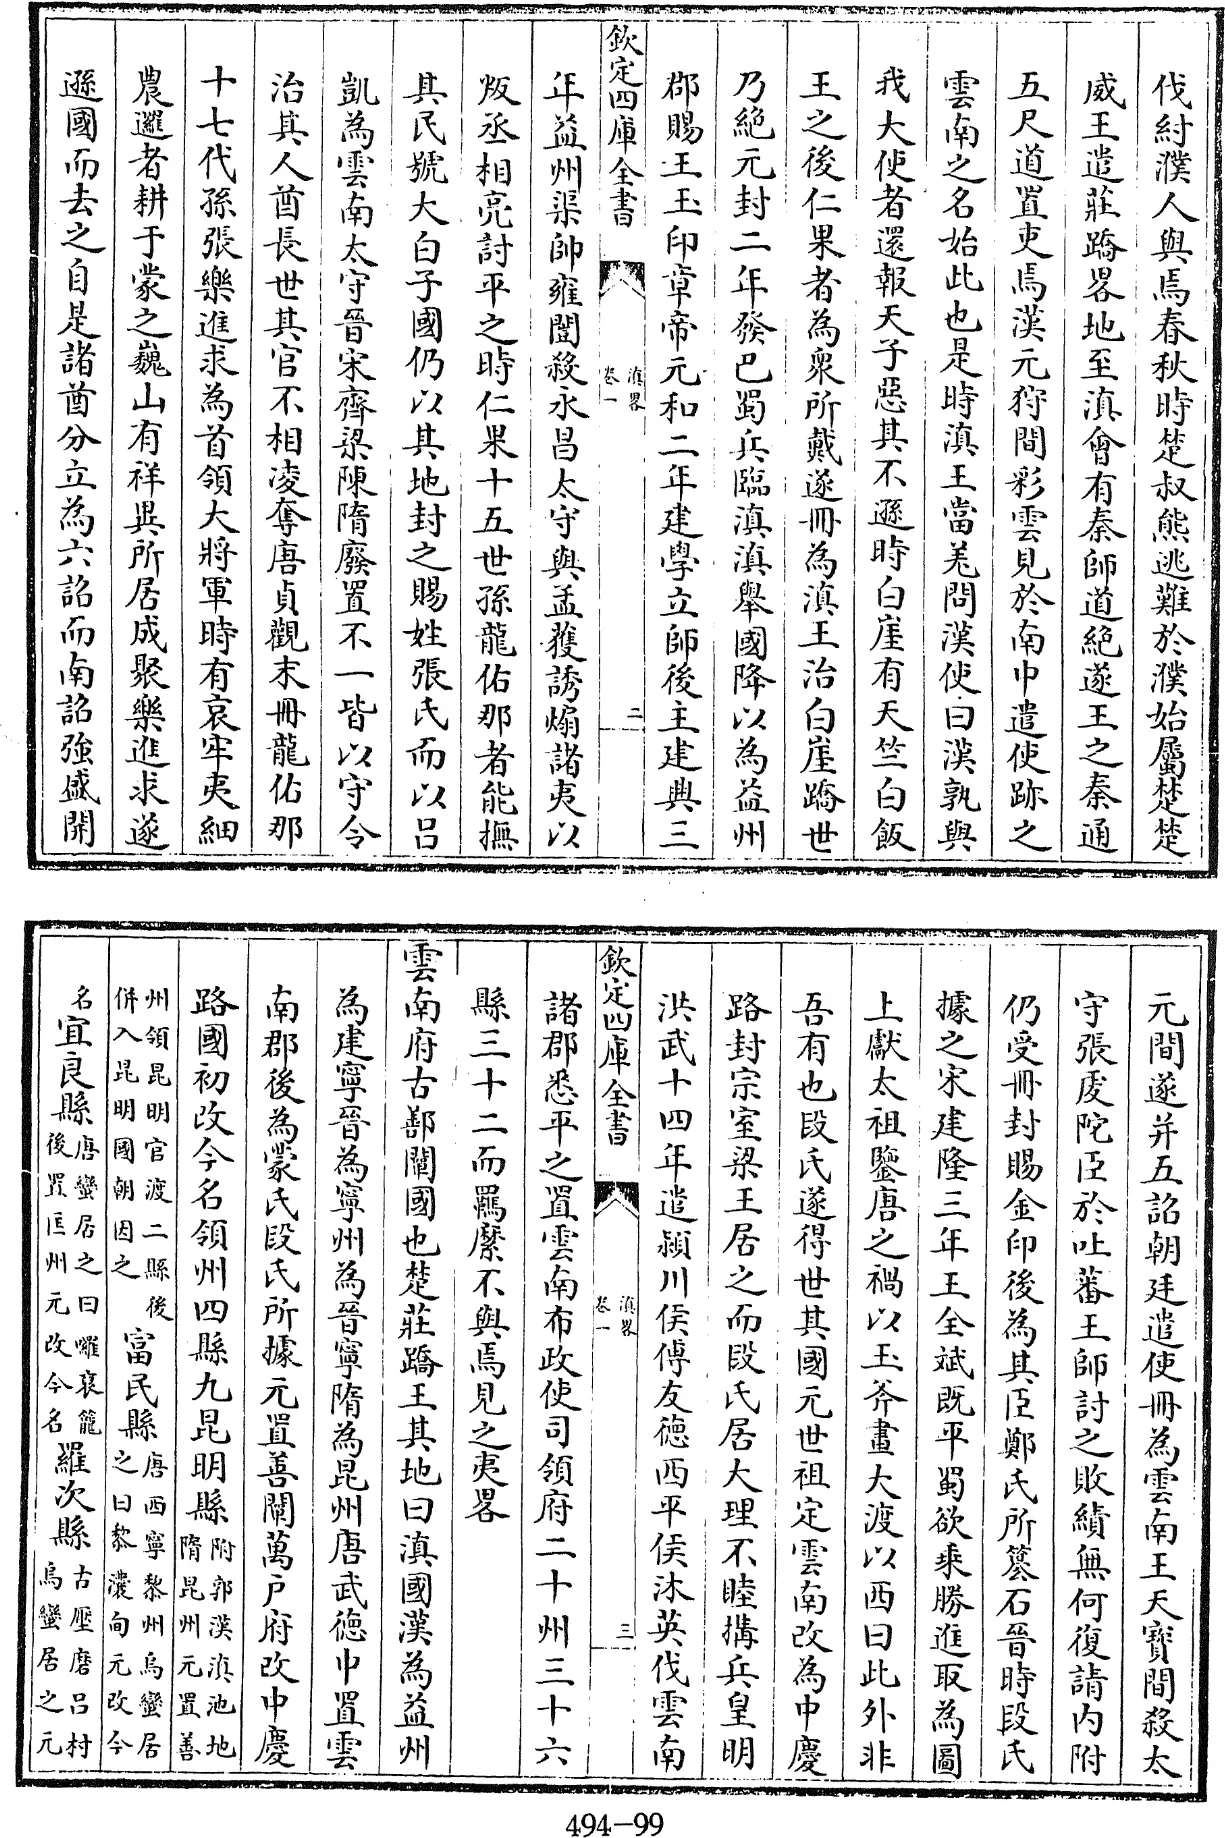 伐紂濮人與焉春秋時楚叔熊逃難於濮始屬楚楚
威王遣莊蹻畧地至滇會有秦師道絶遂王之秦通
五尺道置吏焉漢元狩間彩雲見於南中遣使跡之
雲南之名始此也是時滇王當羌問漢使曰漢孰與
我大使者還報天子惡其不遜時白崖有天竺白飯
王之後仁果者為衆所戴遂冊為滇王治白崖蹻世
乃絶元封二年發巴蜀兵臨滇滇舉國降以為益州
郡賜王玉印章帝元和二年建學立師後主建興三
欽定四庫全書
滇畧
卷一
二
年益州渠帥雍闓殺永昌太守與孟獲誘煽諸夷以
叛丞相亮討平之時仁果十五世孫龍佑那者能撫
其民號大白子國仍以其地封之賜姓張氏而以呂
凱為雲南太守晉宋齊梁陳隋廢置不一皆以守令
治其人酋長世其官不相凌奪唐貞觀末冊龍佑那
十七代孫張樂進求為首領大將軍時有哀牢夷細
農邏者耕于蒙之巍山有祥異所居成聚樂進求遂
遜國而去之自是諸酋分立為六詔而南詔強盛開
元間遂并五詔朝廷遣使冊為雲南王天寶間殺太
守張虔陀臣於吐蕃王師討之敗績無何復請内附
仍受冊封賜金印後為其臣鄭氏所簒石晉時段氏
據之宋建隆三年王全斌既平蜀欲乘勝進取為圖
上獻太祖鑒唐之禍以玉斧畫大渡以西曰此外非
吾有也段氏遂得世其國元世祖定雲南改為中慶
路封宗室梁王居之而段氏居大理不睦搆兵皇明
洪武十四年遣潁川侯傅友德西平侯沐英伐雲南
欽定四庫全書
滇畧
卷一
三
諸郡悉平之置雲南布政使司領府二十州三十六
縣三十二而羈縻不與焉見之夷畧
雲南府古鄯闡國也楚莊蹻王其地曰滇國漢為益州
為建寧晉為寧州為晉寧隋為昆州唐武德中置雲
南郡後為蒙氏段氏所據元置善闡萬戶府改中慶
路國初改今名領州四縣九昆明縣附郭漢滇池地
隋昆州元置善
州領昆明官渡二縣後
併入昆明國朝因之富民縣唐西寧黎州烏蠻居
之曰黎瀼甸元改今
名宜良縣唐蠻居之曰囉裒籠
後置匡州元改今名羅次縣古壓磨呂村
烏蠻居之元
494-99